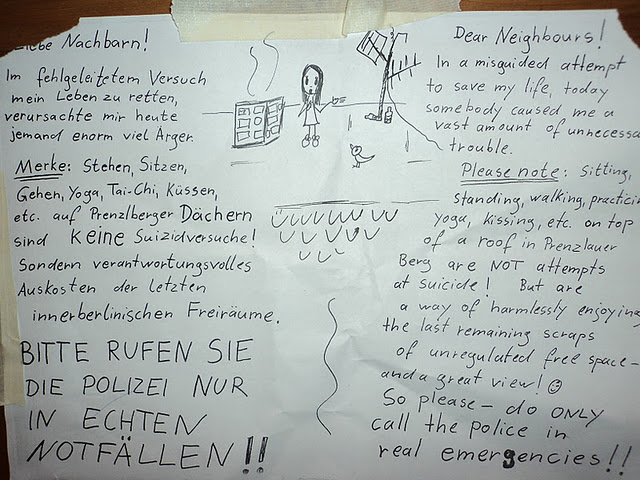 Liebe Nachbarn!
Im fehlgeleitetem Versuch
mein Leben zu retten,
verursachte mir heute
jemand enorm viel Ärger.
Merke: Stehen, Sitzen,
Gehen, Yoga, Tai-Chi, Küssen,
etc. auf Prenzlberger Dächern
sind keine Suizidversuche!
Sondern verantwortungsvolles
Auskosten der letzten
innerberlinischen Freiräume.
BITTE RUFEN SIE
DIE POLIZEI NUR
IN ECHTEN
NOTFÄLLEN!!
Dear Neighbours!
In a misguided attempt
to save my life, today
somebody caused me a
vast amount of unnecessa
trouble.
Please note: Sitting,
standing, walking, practicin
yoga, kissing, etc. on top
of a roof in Prenzlauer
Berg are NOT attempts
at suicide! But are
a way of harmlessly enjoying
the last remaining scraps
of unregulated free space-
and a great view! ☺
So please - do ONLY
call the police in
real emergencies!!